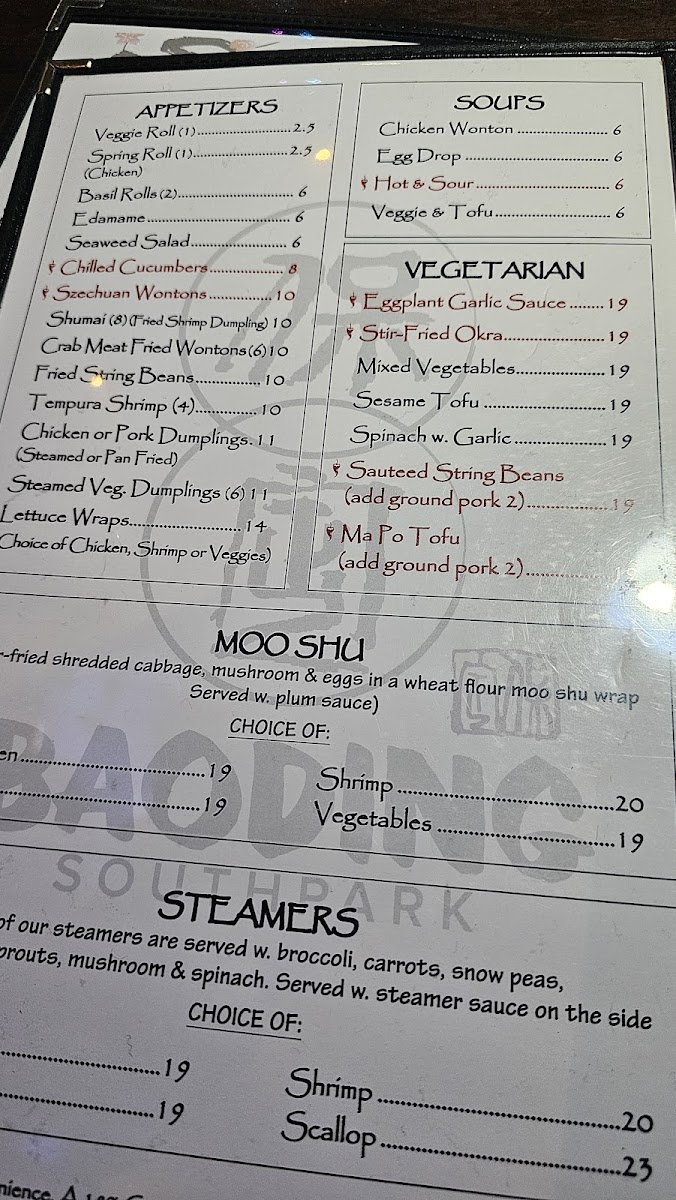 APPETIZERS
Veggie Roll (1)..............................2.5
Spring Roll (1)..............................2.5
(Chicken)
Basil Rolls (2)..............................6
Edamame..............................6
Seaweed Salad..............................6
Chilled Cucumbers..............................8
Szechuan Wontons..............................10
Shumai (8) (Fried Shrimp Dumpling) 10
Crab Meat Fried Wontons (6) 10
Fried String Beans..............................10
Tempura Shrimp (4)..............................10
Chicken or Pork Dumplings. 11
(Steamed or Pan Fried)
Steamed Veg. Dumplings (6) 11
Lettuce Wraps..............................14
Choice of Chicken, Shrimp or Veggies)
SOUPS
Chicken Wonton..............................6
Egg Drop..............................6
Hot & Sour..............................6
Veggie & Tofu..............................6
VEGETARIAN
Eggplant Garlic Sauce........19
Stir-Fried Okra..............................19
Mixed Vegetables..............................19
Sesame Tofu..............................19
Spinach w. Garlic..............................19
Sauteed String Beans
(add ground pork 2)..............................19
Ma Po Tofu
(add ground pork 2)..............................
MOO SHU
-fried shredded cabbage, mushroom & eggs in a wheat flour moo shu wrap
Served w. plum sauce)
CHOICE OF:
en..............................19
Shrimp..............................20
..............................19
Vegetables..............................19
BAODING
SOUTHPARK
STEAMERS
of our steamers are served w. broccoli, carrots, snow peas,
prouts, mushroom & spinach. Served w. steamer sauce on the side
CHOICE OF:
..............................19
Shrimp..............................20
..............................19
Scallop..............................23